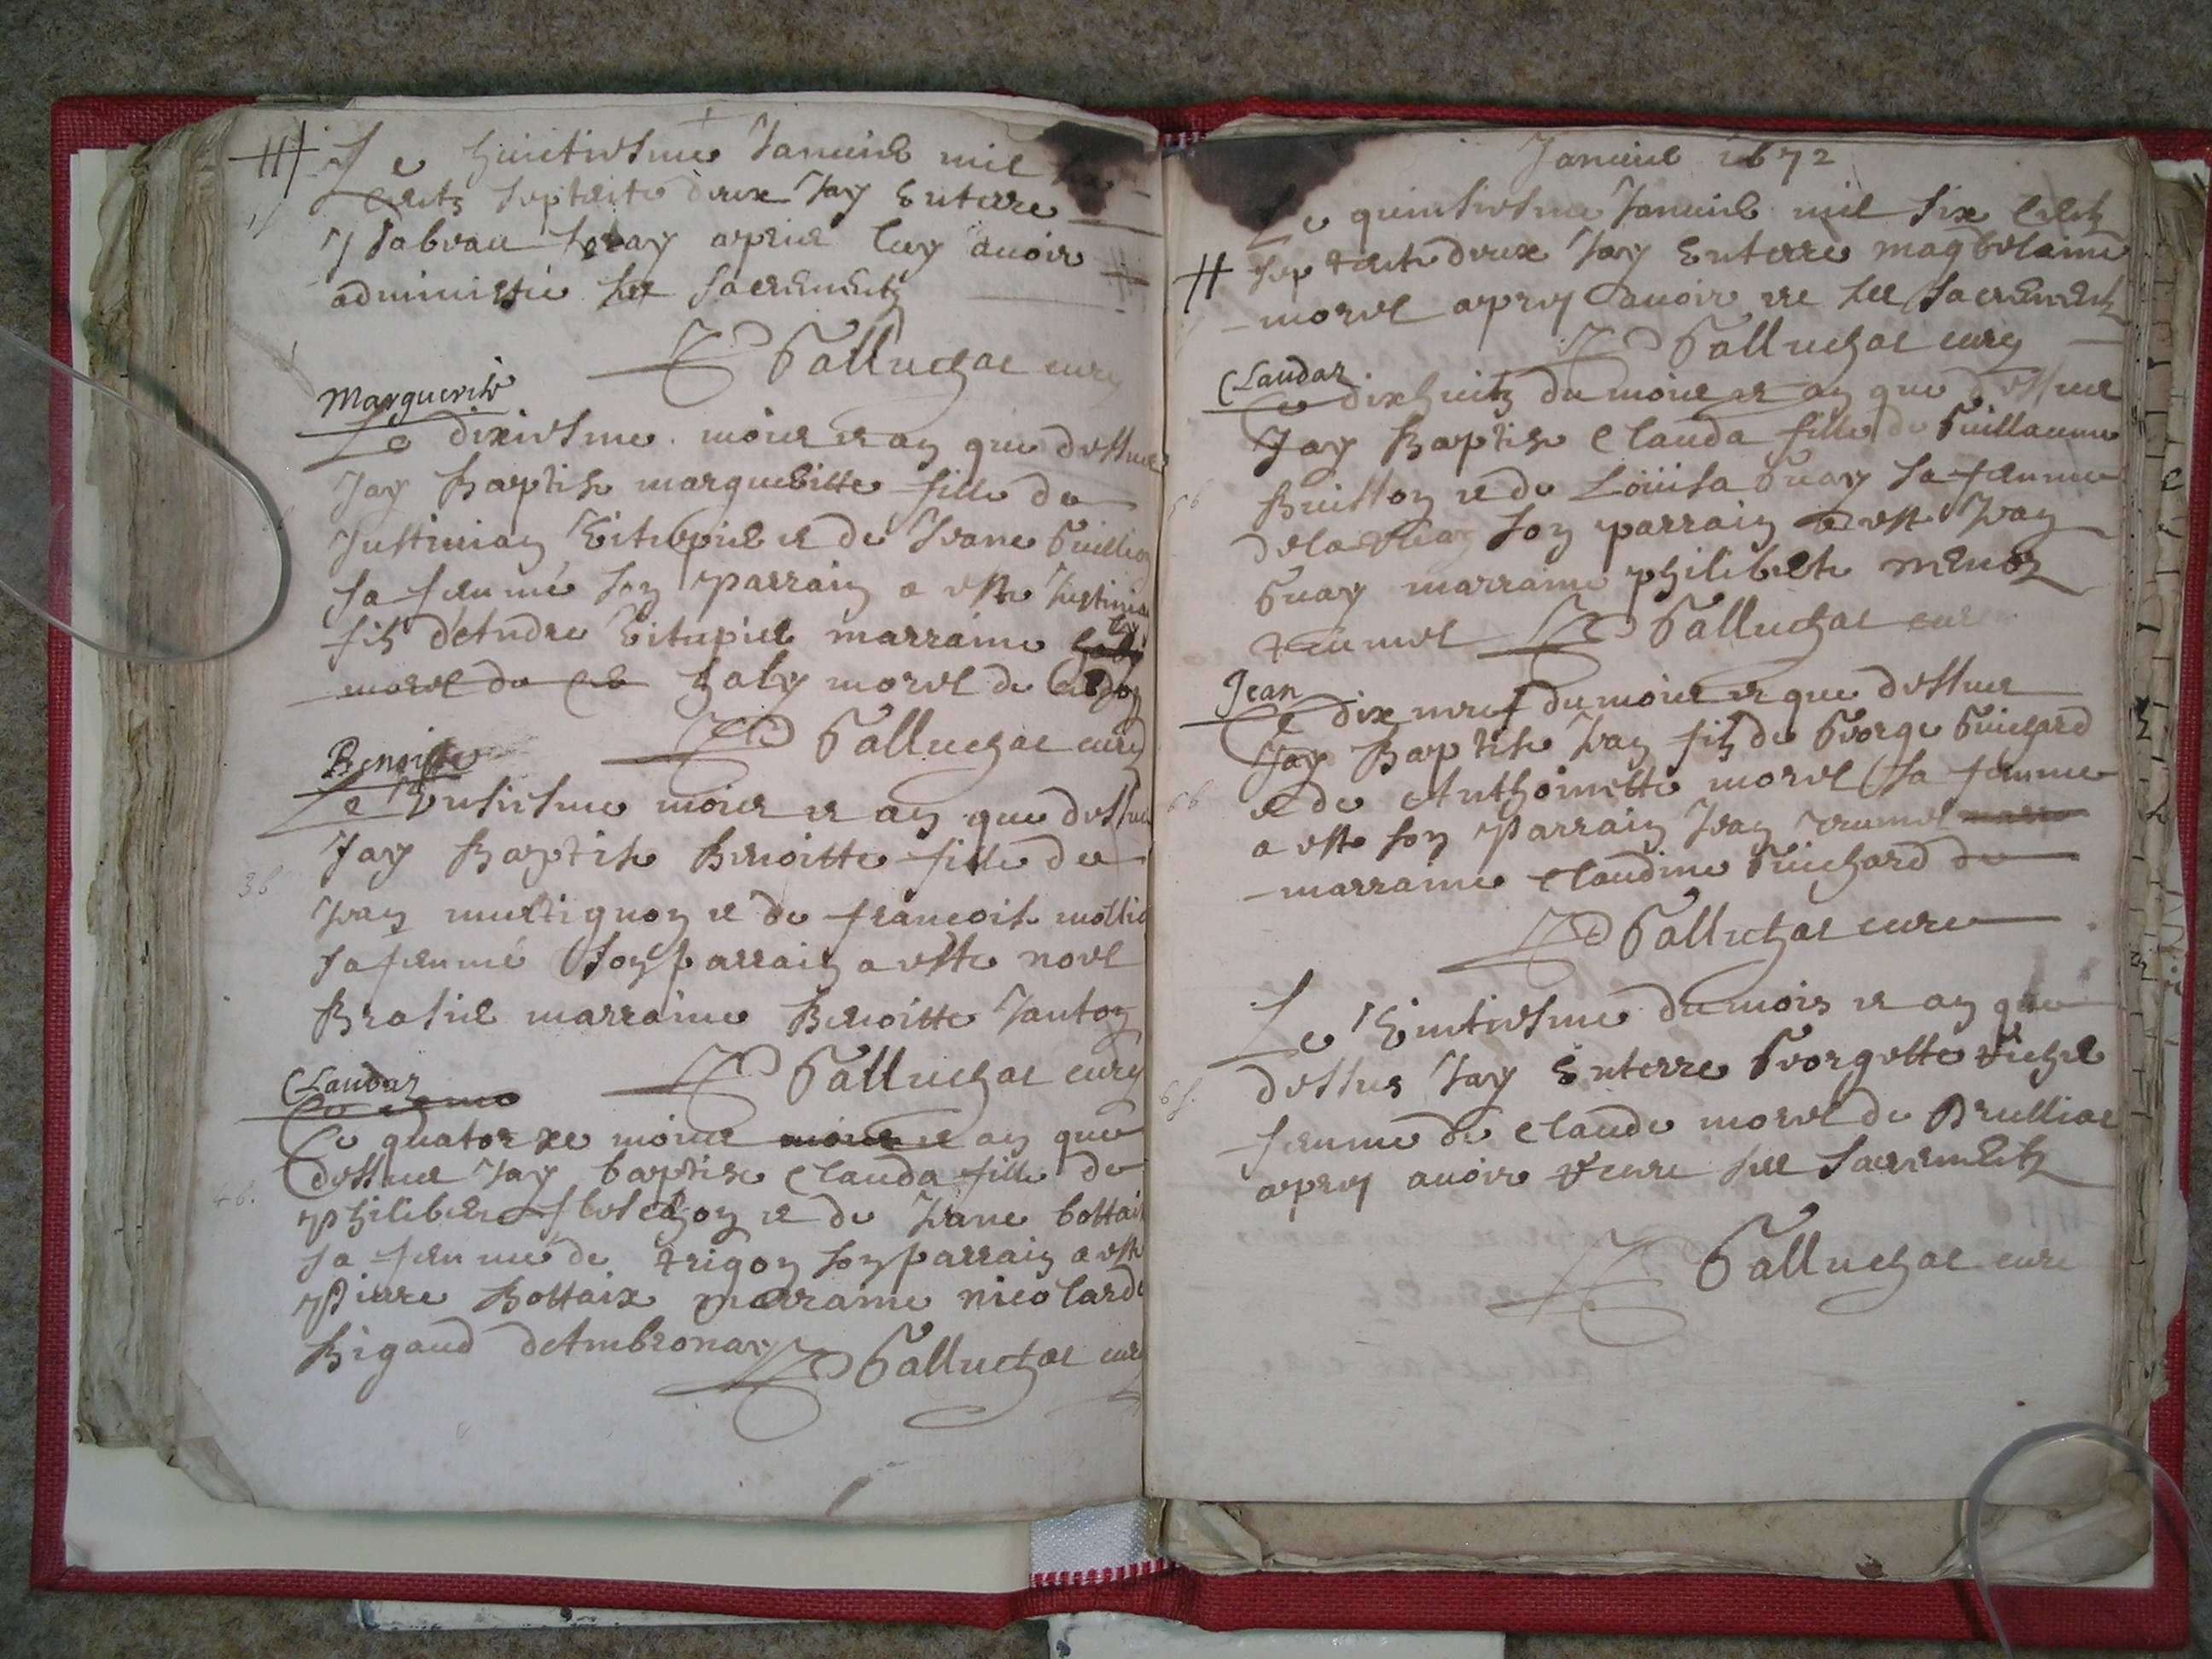 Le huictiesme Januier mil
centz septante deux Jay Enterre
Ysabeau apres luy auoir
administre les sacrementz
Galluchat cure
Marguerite
Le dixiesme mois et an que dessus
Jay Baptise margueritte fille de
Justinian et de Jeane
sa femme son parrain a este Justinian
filz d'Andre marraine
morel de haly morel de
Galluchat cure
Benoiste
Le unsiesme mois et an que dessus
Jay Baptise Benoitte fille de
Jean et de francoise
sa femme son parrain a este noel
Brasier marraine Benoitte Janton
Galluchat cure
Claudaz
Le quatorze mois mois et an que
dessus Jay baptise Clauda fille de
Philibert et de Jeane bottaix
sa femme de trigon son parrain a este
Pierre Bottaix marraine nicolarde
Rigaud d'Ambronay Galluchat cure
Januier 1672
Le quinsiesme Januier mil six centz
septente deux Jay Enterre magdelaine
morel apres auoir les sacrementz
Galluchat cure
Claudaz
Le dixhuitz du mois et an que dessus
Jay Baptise Clauda fille de Guillaume
et de Louisa Guay sa femme
son parrain a este Jean
Guay marraine philiberte
trumel Galluchat cure
Jean
Le dix neuf du mois et que dessus
Jay Baptise Jean filz de George Guichard
et de Anthoinette morel sa femme
a este son Parrain Jean trumel
marraine Claudine Guichard de
Galluchat cure
Le Vintiesme du mois et an que
dessus Jay Enterre Georgette
femme de Claude morel de
apres auoir les sacrementz
Galluchat cure